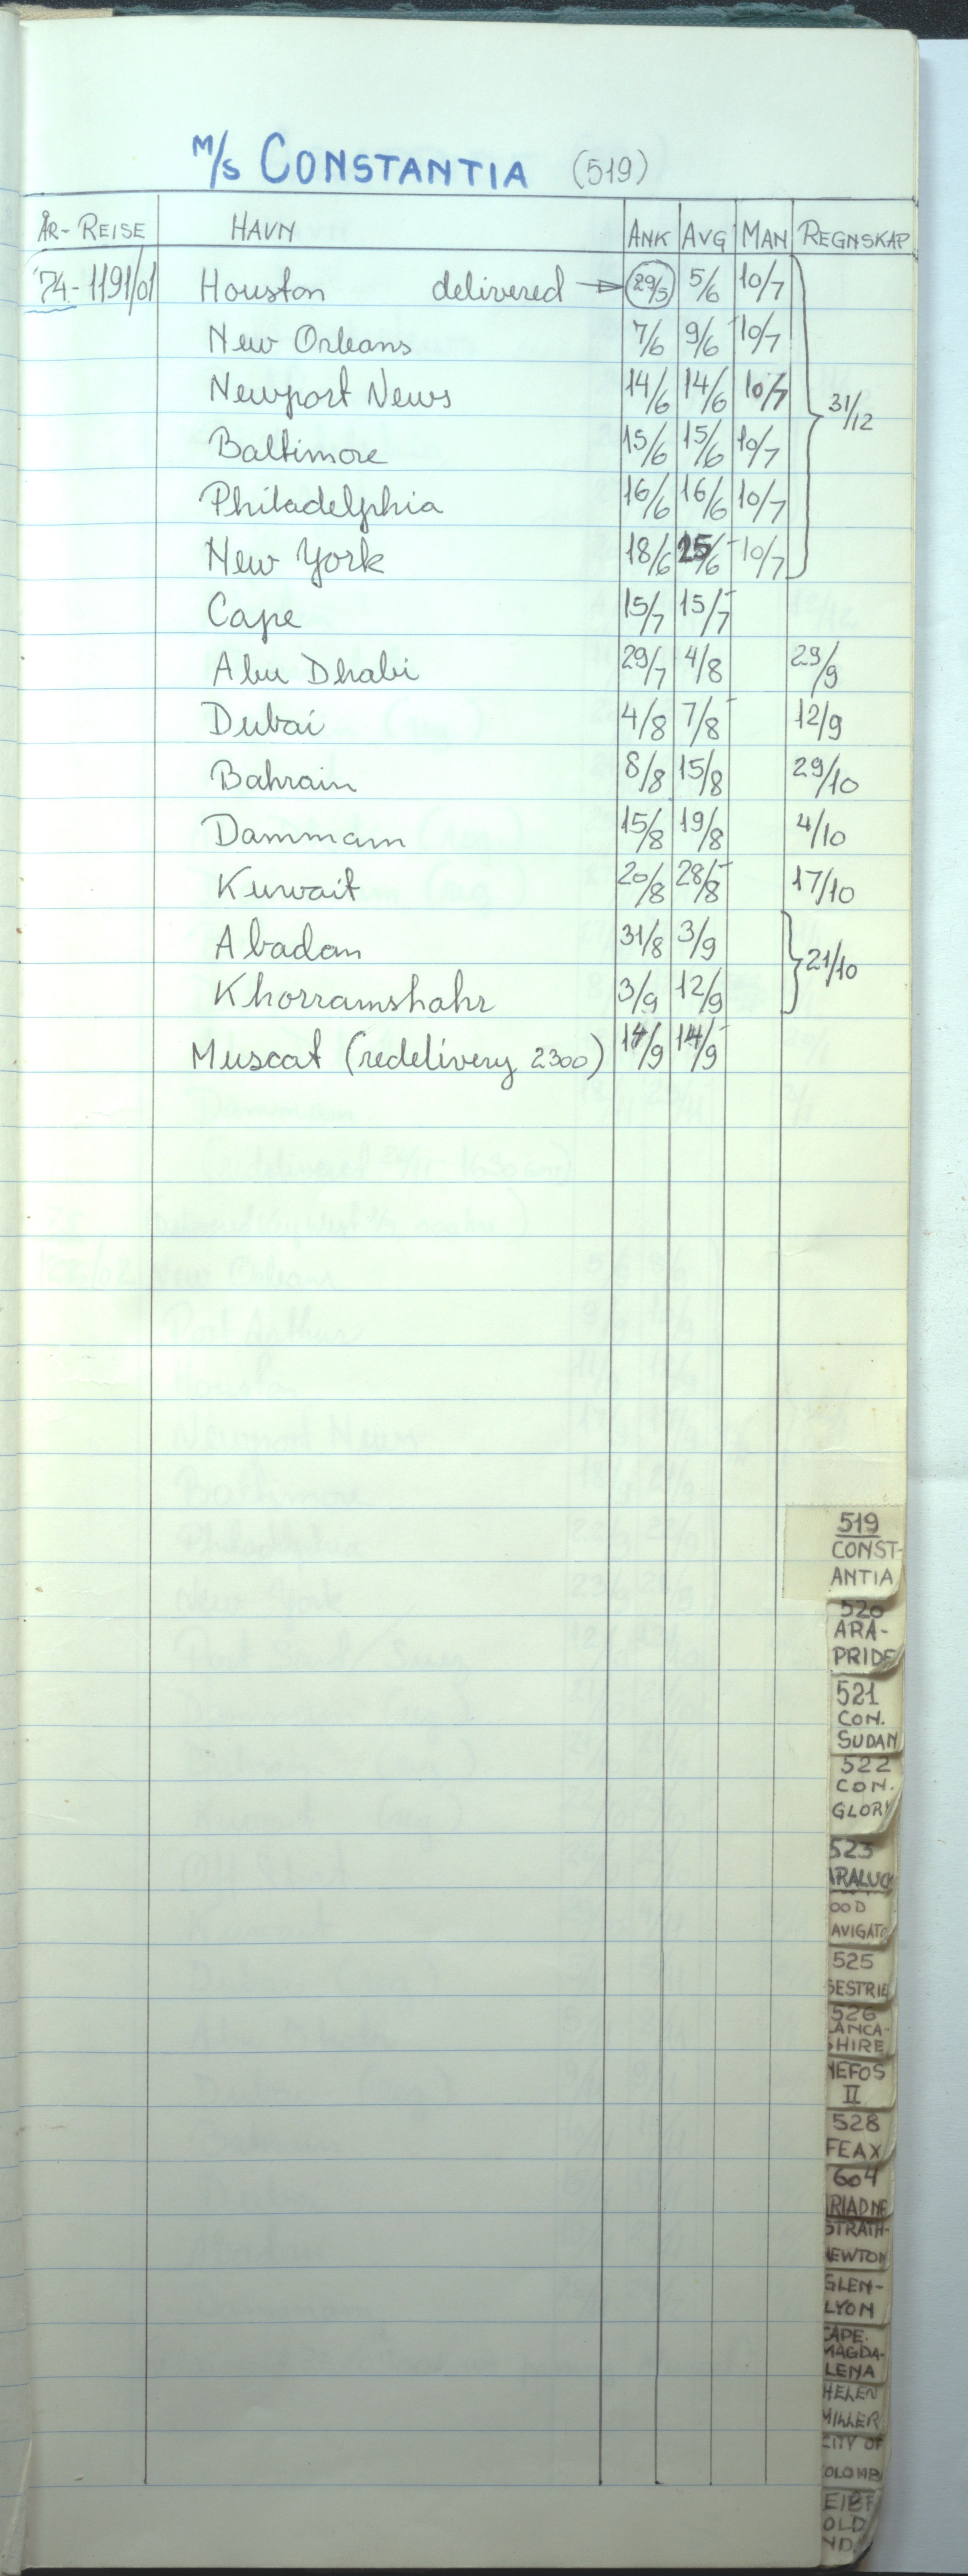 M/S CONSTANTIA (519)
ÅR-REISE HAVN ANK AVG MAN REGNSKAP
'74-1191/01 Houston delivered → 29/5 5/6 10/7
New Orleans 7/6 9/6 10/7
Newport News 14/6 14/6 10/7 31/12
Baltimore 15/6 15/6 10/7
Philadelphia 16/6 16/6 10/7
New York 18/6 25/6 10/7
Cape 15/7 15/7
Abu Dhabi 29/7 4/8 29/9
Dubai 4/8 7/8 12/9
Bahrain 8/8 15/8 29/10
Dammam 15/8 19/8 4/10
Kuwait 20/8 28/8 17/10
Abadan 31/8 3/9 21/10
Khorramshahr 3/9 12/9
Muscat (redelivery 2300) 14/9 14/9
519
CONST-
ANTIA
520
ARA-
PRIDE
521
CON.
SUDAN
522
CON.
GLORY
523
ARALUC
OOD
AVIGATO
525
SESTRIE
526
LANCA-
SHIRE
NEFOS
II
528
FEAX
604
RIADNE
STRATH-
NEWTON
GLEN-
LYON
CAPE
MAGDA-
LENA
HELEN
MILLER
CITY OF
OLOMB
OLD